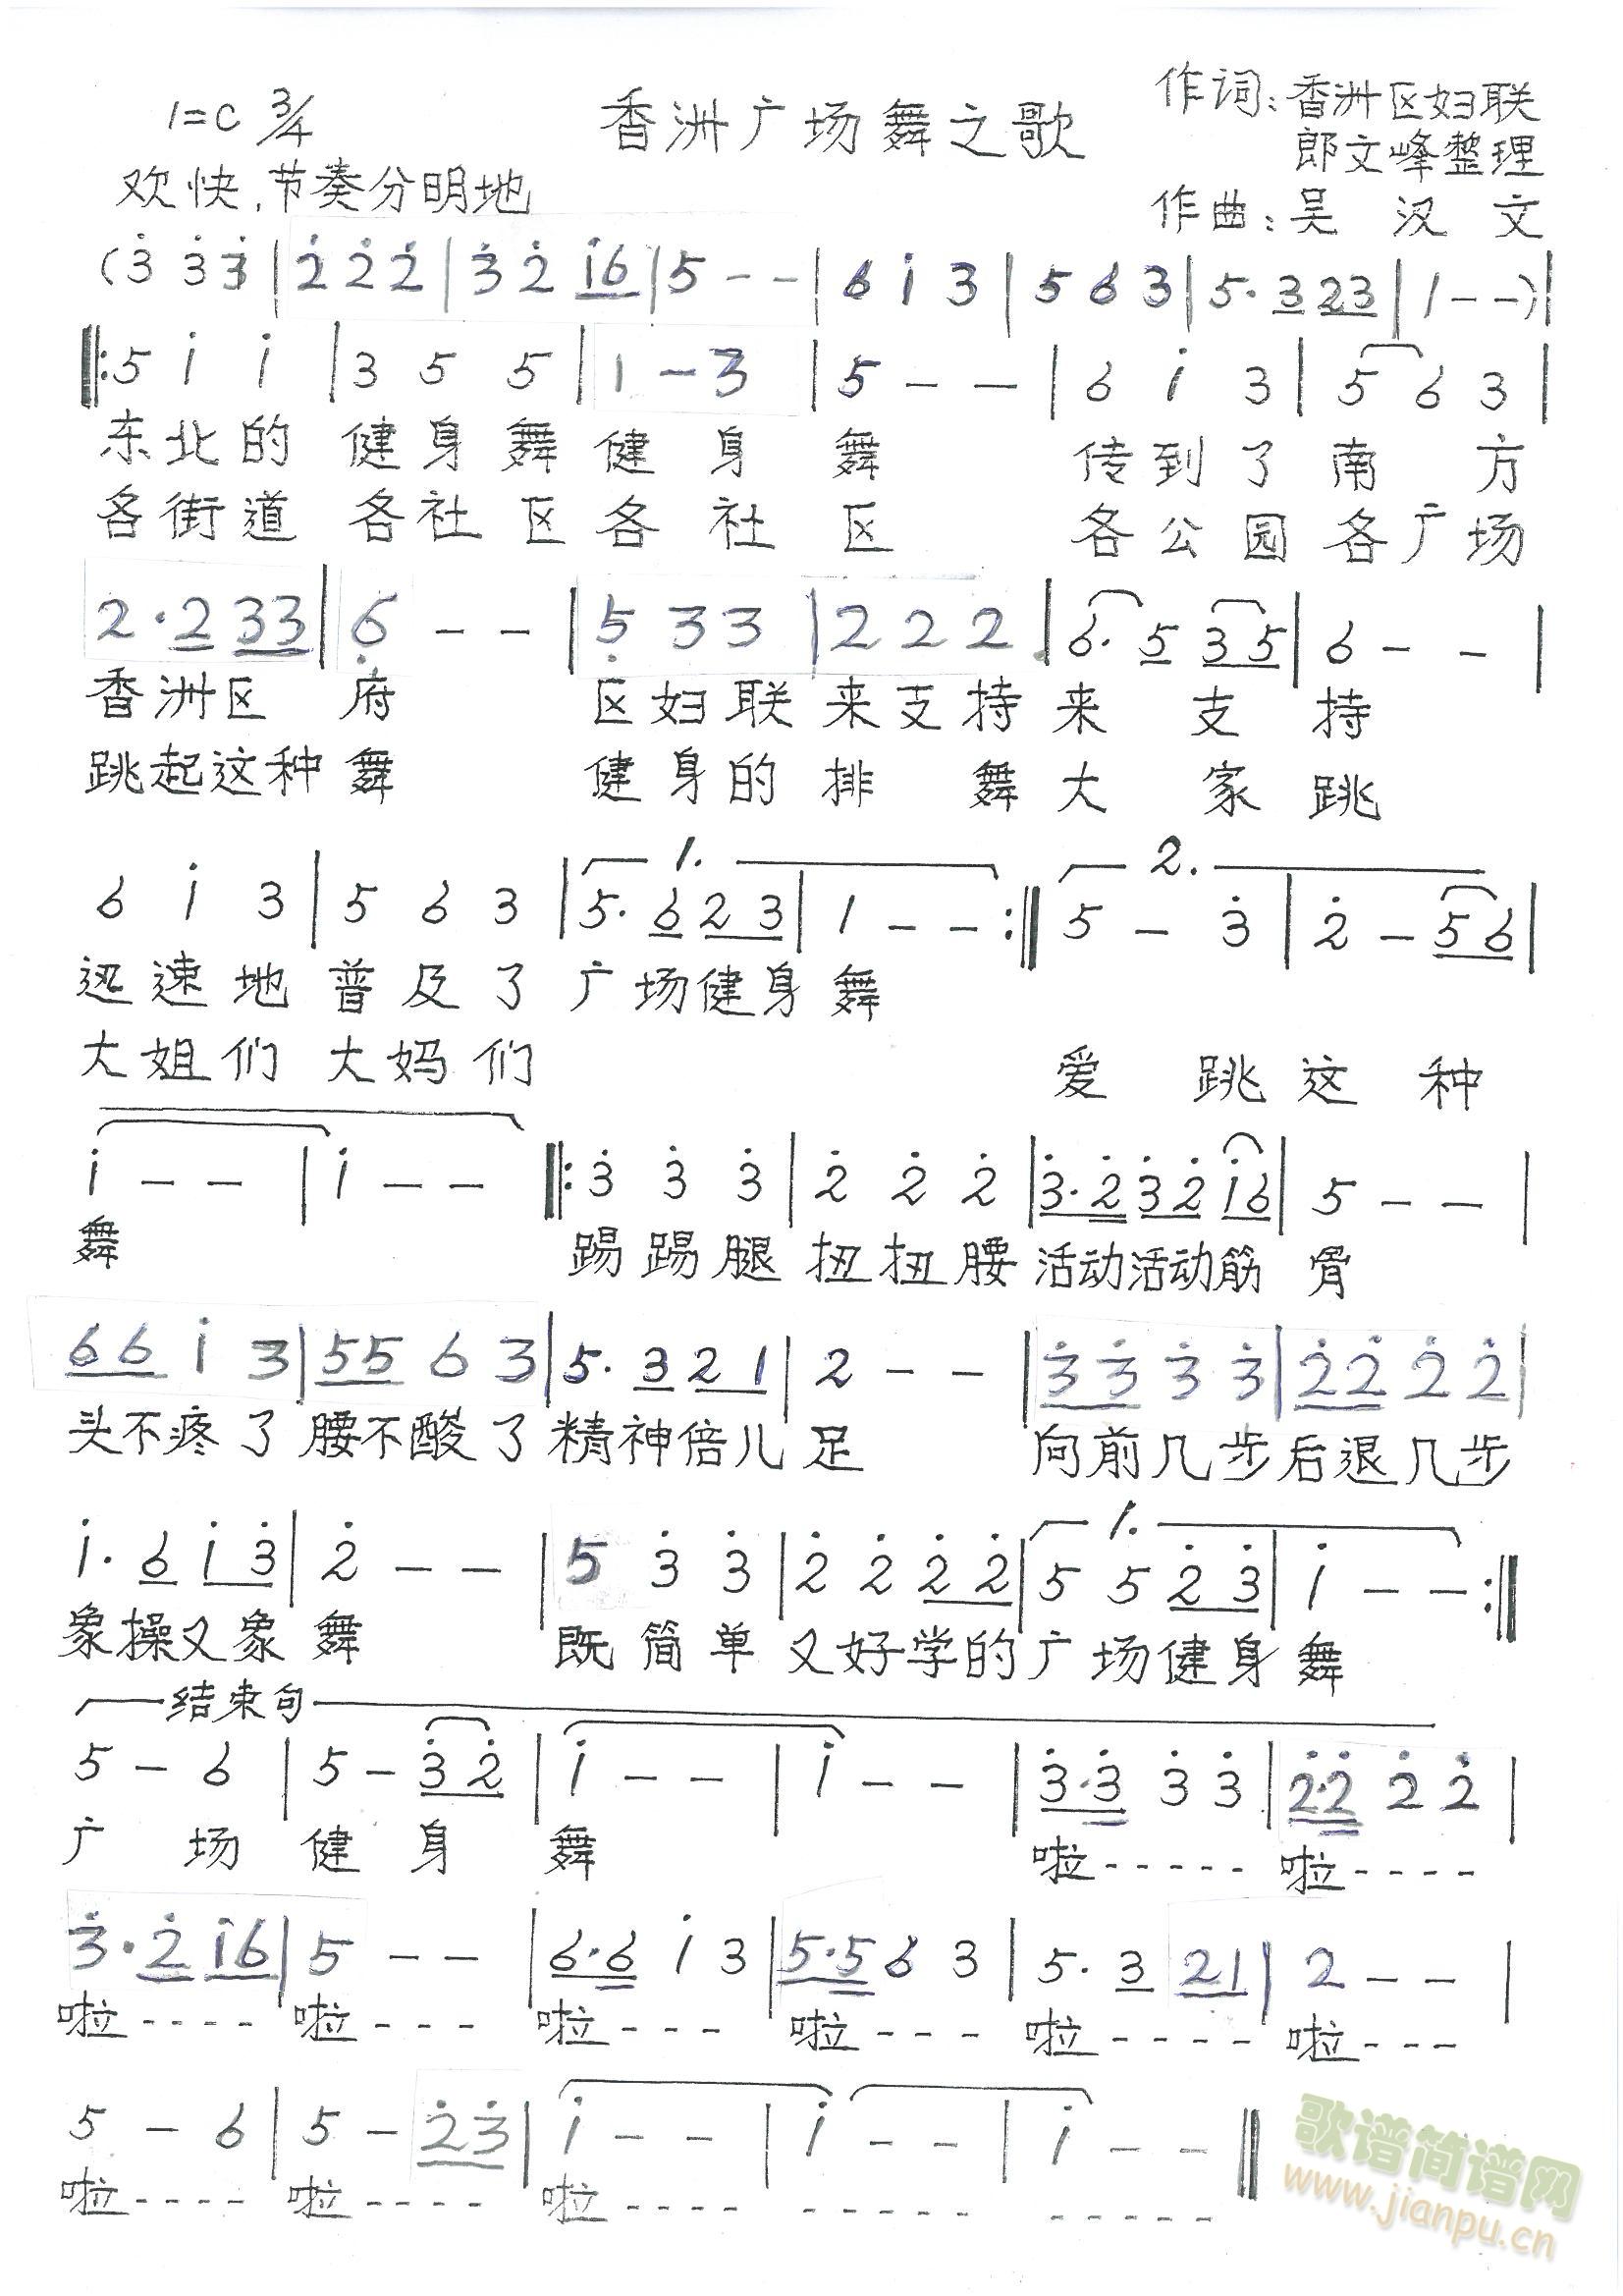 1=C 3/4
香洲广场舞之歌
作词:香洲区妇联
郎文峰整理
欢快,节奏分明地
作曲:吴汉文
(3̇ 3̇ 3̇ | 2̇ 2̇ 2̇ | 3̇ 2̇ 1̇6 | 5 - - | 6 1̇ 3 | 5 6 3 | 5· 3 23 | 1 - -) |
‖: 5 1̇ 1̇ | 3 5 5 | 1 - 3 | 5 - - | 6 1̇ 3 | 5 6 3 |
东北的 健身舞 健身舞 传到了 南方
各街道 各社区 各社区 各公园 各广场
2·2 33 | 6̣ - - | 5̣ 3 3 | 2 2 2 | 6· 5 35 | 6 - - |
香洲区 府 区妇联 来支持 来支持
跳起这种 舞 健身的 排舞 大家跳
6 1̇ 3 | 5 6 3 | 1. 5· 6 2 3 | 1 - - :‖ 2. 5 - 3̇ | 2̇ - 56 |
迅速地 普及了 广场健身 舞
大姐们 大妈们 爱跳这种
1̇ - - | 1̇ - - ‖: 3̇ 3̇ 3̇ | 2̇ 2̇ 2̇ | 3̇·2̇ 3̇2̇ 1̇6 | 5 - - |
舞 踢踢腿 扭扭腰 活动活动筋 骨
66 1̇ 3 | 55 6 3 | 5· 3 2 1 | 2 - - | 3̇3̇ 3̇ 3̇ | 2̇2̇ 2̇ 2̇ |
头不疼了 腰不酸了 精神倍儿 足 向前几步 后退几步
1̇· 6 1̇ 3̇ | 2̇ - - | 5 3̇ 3̇ | 2̇ 2̇ 2̇ 2̇ | 1. 5 5 2̇ 3̇ | 1̇ - - :‖
象操又象 舞 既简单 又好学的 广场健身 舞
结束句
5 - 6 | 5 - 3̇2̇ | 1̇ - - | 1̇ - - | 3̇·3̇ 3̇ 3̇ | 2̇·2̇ 2̇ 2̇ |
广场 健身 舞 啦----- 啦----
3̇·2̇ 1̇6 | 5 - - | 6·6 1̇ 3 | 5·5 6 3 | 5· 3 21 | 2 - - |
啦---- 啦--- 啦--- 啦--- 啦---- 啦---
5 - 6 | 5 - 2̇3̇ | 1̇ - - | 1̇ - - | 1̇ - - ‖
啦---- 啦---- 啦---- ----- -----
歌谱简谱网
www.jianpu.cn